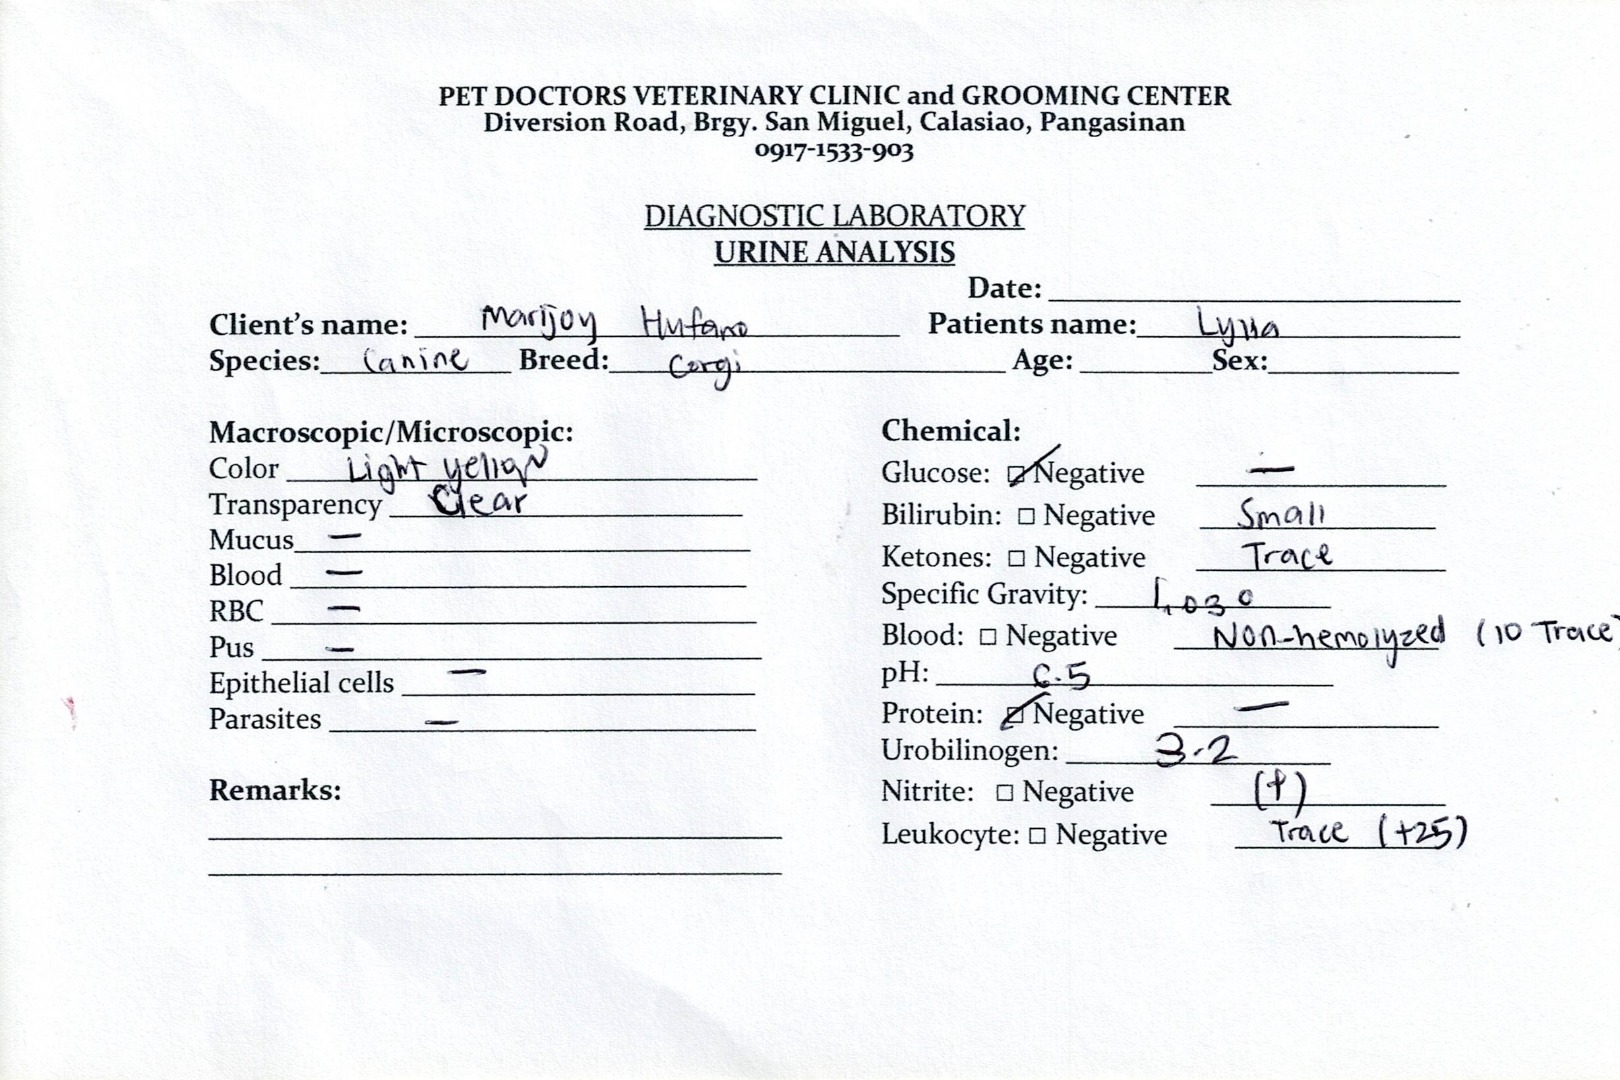 PET DOCTORS VETERINARY CLINIC and GROOMING CENTER
Diversion Road, Brgy. San Miguel, Calasiao, Pangasinan
0917-1533-903
DIAGNOSTIC LABORATORY
URINE ANALYSIS
Date:
Client's name: Marijoy Hufano Patients name:
Species: Canine Breed: Corgi Age: Sex:
Macroscopic/Microscopic:
Color Light yellow
Transparency Clear
Mucus —
Blood —
RBC —
Pus —
Epithelial cells —
Parasites —
Remarks:
Chemical:
Glucose: ☑ Negative —
Bilirubin: □ Negative Small
Ketones: □ Negative Trace
Specific Gravity: 1.030
Blood: □ Negative Non-hemolyzed (10 Trace)
pH: 6.5
Protein: ☑ Negative —
Urobilinogen: 3.2
Nitrite: □ Negative (+)
Leukocyte: □ Negative Trace (+25)